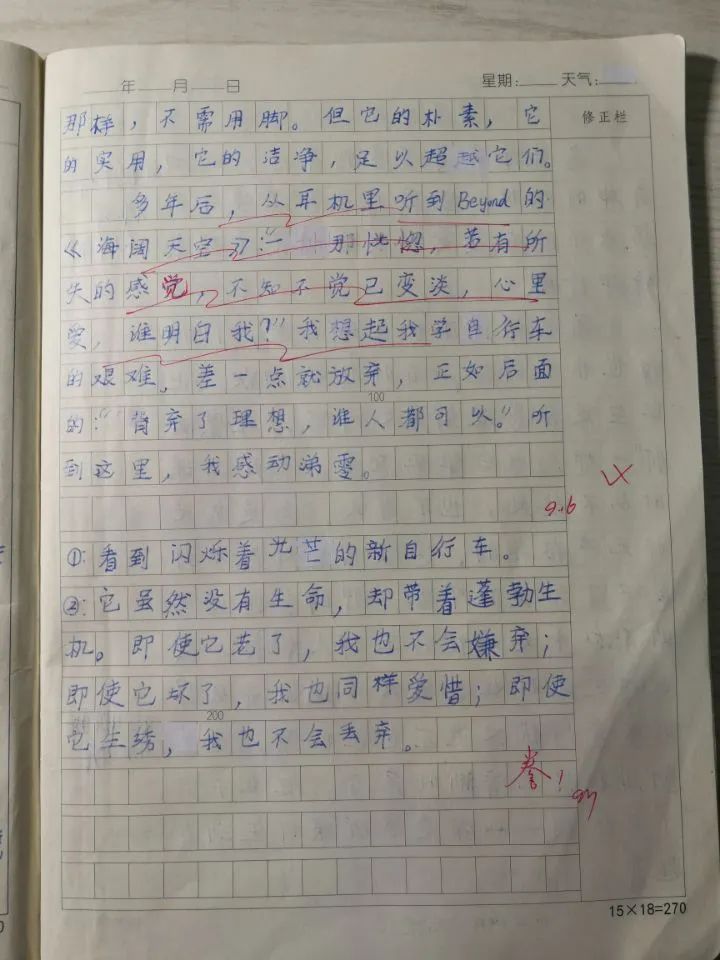 年 月 日 星期: 天气:
修正栏
那样，不需用脚。但它的朴素，它
的实用，它的洁净，足以超越它们。
多年后，从耳机里听到Beyond的
《海阔天空》：“一 那恍惚，若有所
失的感觉，不知不觉已变淡，心里
爱，谁明白我？”我想起我学自行车
的艰难，差一点就放弃，正如后面
100
的：“背弃了理想，谁人都可以。”听
到这里，我感动涕零。
9.6
①：看到闪烁着光芒的新自行车。
②：它虽然没有生命，却带着蓬勃生
机。即使它老了，我也不会嫌弃；
即使它坏了，我也同样爱惜；即使
200
它生锈，我也不会丢弃。
15×18=270